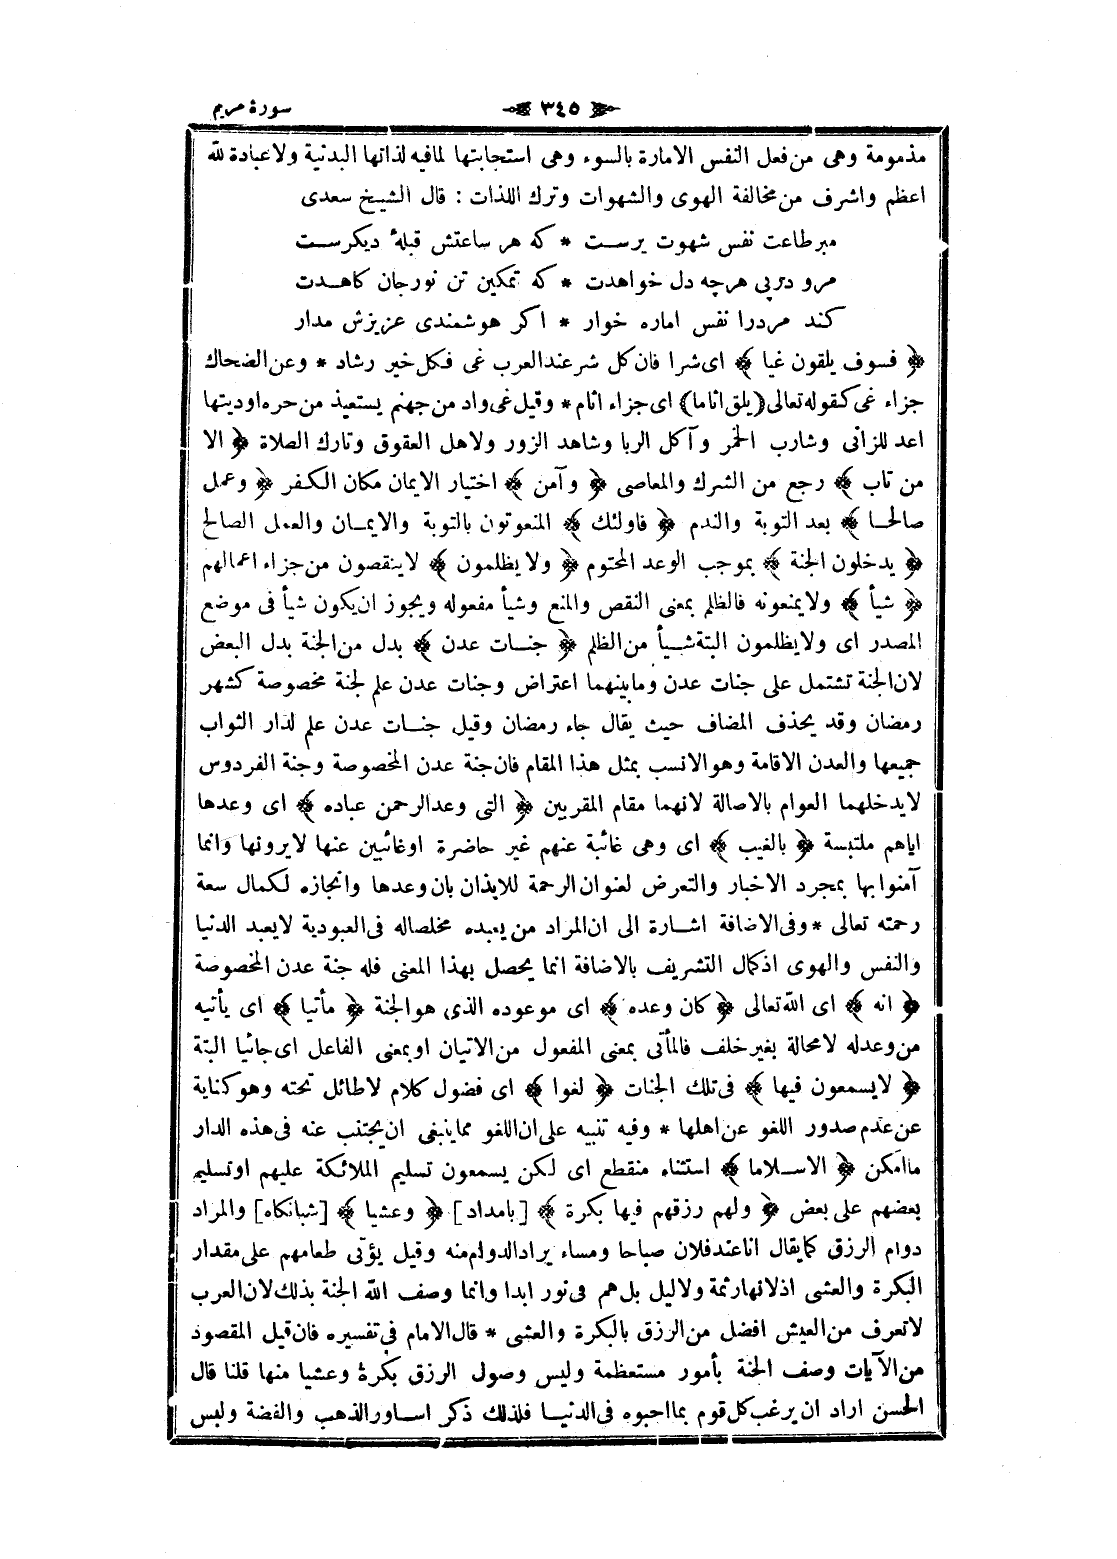 سورة مريم ٣٤٥
مذمومة وهى من فعل النفس الامارة بالسوء وهى استجابتها لما فيه لذاتها البدنية ولا عبادة لله
اعظم واشرف من مخالفة الهوى والشهوات وترك اللذات : قال الشيخ سعدى
مبر طاعت نفس شهوت پرست * كه هر ساعتش قبلهٔ ديكرست
مرو در پى هرچه دل خواهدت * كه تمكين تن نور جان كاهدت
كند مرد را نفس اماره خوار * اكر هوشمندى عزيزش مدار
﴿ فسوف يلقون غيا ﴾ اى شرا فان كل شر عند العرب غى فكل خير رشاد * وعن الضحاك
جزاء غى كقوله تعالى (يلق اثاما) اى جزاء اثام * وقيل غى واد من جهنم يستعيذ من حره اوديتها
اعد للزانى وشارب الخمر وآكل الربا وشاهد الزور ولاهل العقوق وتارك الصلاة ﴿ الا
من تاب ﴾ رجع من الشرك والمعاصى ﴿ وآمن ﴾ اختيار الايمان مكان الكفر ﴿ وعمل
صالحا ﴾ بعد التوبة والندم ﴿ فاولئك ﴾ المنعوتون بالتوبة والايمان والعمل الصالح
﴿ يدخلون الجنة ﴾ بموجب الوعد المحتوم ﴿ ولا يظلمون ﴾ لا ينقصون من جزاء اعمالهم
﴿ شيأ ﴾ ولا يمنعونه فالظلم بمعنى النقص والمنع وشيأ مفعوله ويجوز ان يكون شيأ فى موضع
المصدر اى ولا يظلمون البتة شيأ من الظلم ﴿ جنات عدن ﴾ بدل من الجنة بدل البعض
لان الجنة تشتمل على جنات عدن وما بينهما اعتراض وجنات عدن علم لجنة مخصوصة كشهر
رمضان وقد يحذف المضاف حيث يقال جاء رمضان وقيل جنات عدن علم لدار الثواب
جميعها والعدن الاقامة وهو الانسب بمثل هذا المقام فان جنة عدن المخصوصة وجنة الفردوس
لا يدخلهما العوام بالاصالة لانهما مقام المقربين ﴿ التى وعد الرحمن عباده ﴾ اى وعدها
اياهم ملتبسة ﴿ بالغيب ﴾ اى وهى غائبة عنهم غير حاضرة او غائبين عنها لا يرونها وانما
آمنوا بها بمجرد الاخبار والتعرض لعنوان الرحمة للايذان بان وعدها وانجازه لكمال سعة
رحمته تعالى * وفى الاضافة اشارة الى ان المراد من يعبده مخلصا له فى العبودية لا يعبد الدنيا
والنفس والهوى اذ كمال التشريف بالاضافة انما يحصل بهذا المعنى فله جنة عدن المخصوصة
﴿ انه ﴾ اى الله تعالى ﴿ كان وعده ﴾ اى موعوده الذى هو الجنة ﴿ مأتيا ﴾ اى يأتيه
من وعد له لا محالة بغير خلف فالمأتى بمعنى المفعول من الاتيان او بمعنى الفاعل اى جائيا البتة
﴿ لا يسمعون فيها ﴾ فى تلك الجنات ﴿ لغوا ﴾ اى فضول كلام لا طائل تحته وهو كناية
عن عدم صدور اللغو عن اهلها * وفيه تنبيه على ان اللغو مما ينبغى ان يجتنب عنه فى هذه الدار
ما امكن ﴿ الا سلاما ﴾ استثناء منقطع اى لكن يسمعون تسليم الملائكة عليهم او تسليم
بعضهم على بعض ﴿ ولهم رزقهم فيها بكرة ﴾ [بامداد] ﴿ وعشيا ﴾ [شبانكاه] والمراد
دوام الرزق كما يقال انا عند فلان صباحا ومساء يراد الدوام منه وقيل يؤتى طعامهم على مقدار
البكرة والعشى اذ لا نهار ثمة ولا ليل بل هم فى نور ابدا وانما وصف الله الجنة بذلك لان العرب
لا تعرف من العيش افضل من الرزق بالبكرة والعشى * قال الامام فى تفسيره فان قيل المقصود
من الآيات وصف الجنة بأمور مستعظمة وليس وصول الرزق بكرة وعشيا منها قلنا قال
الحسن اراد ان يرغب كل قوم بما احبوه فى الدنيا فلذلك ذكر اساور الذهب والفضة ولبس